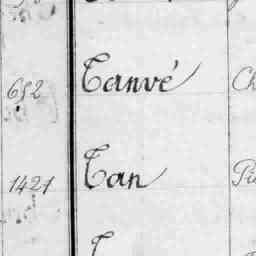 652 Tanvé Ch
1421 Tan